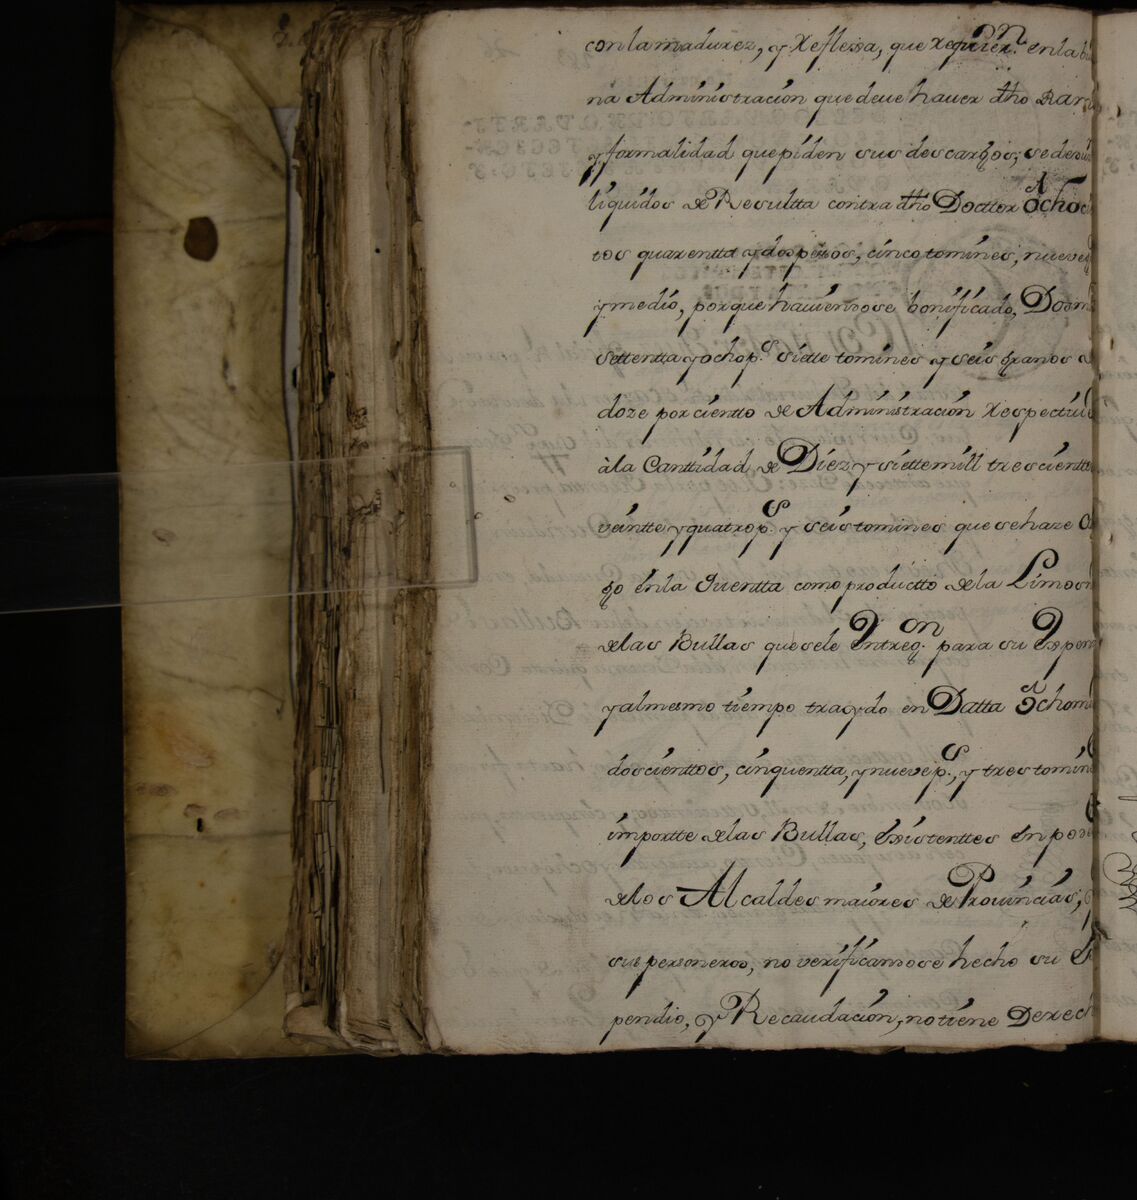 con la madurez, y reflexa, que requieren en la bu
na Administracion que deve haver dho Ram
y formalidad que piden sus descargos; se dedu
liquidos de Resultta contra dho Docttor ocho
tos quarentta y dos pesos, cinco tomines, nueve
y medio, por que haviendose bonificado, Dosm
settentta y ocho p.s siette tomines y seis granos
doze por cientto de Administracion respectiv
à la Canttidad de Diez y siette mill trescientt
veintte y quatro p.s y seis tomines que se haze
go en la Quentta como productto de la Limosn
de las Bullas que se le Entreg.on para su Expen
y al mesmo tiempo traydo en Datta ocho mi
doscienttos, cinquentta, y nueve p.s, y tres tomin
importte de las Bullas, existenttes en pode
de los Alcaldes maiores de Provincias,
sus personeros, no verificandose hecho su
pendio, y Recaudacion, no tiene Derech